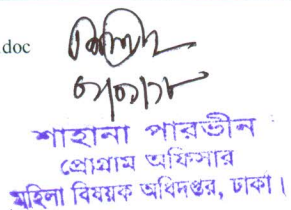 doc
শাহানা পারভীন
প্রোগ্রাম অফিসার
মহিলা বিষয়ক অধিদপ্তর, ঢাকা।